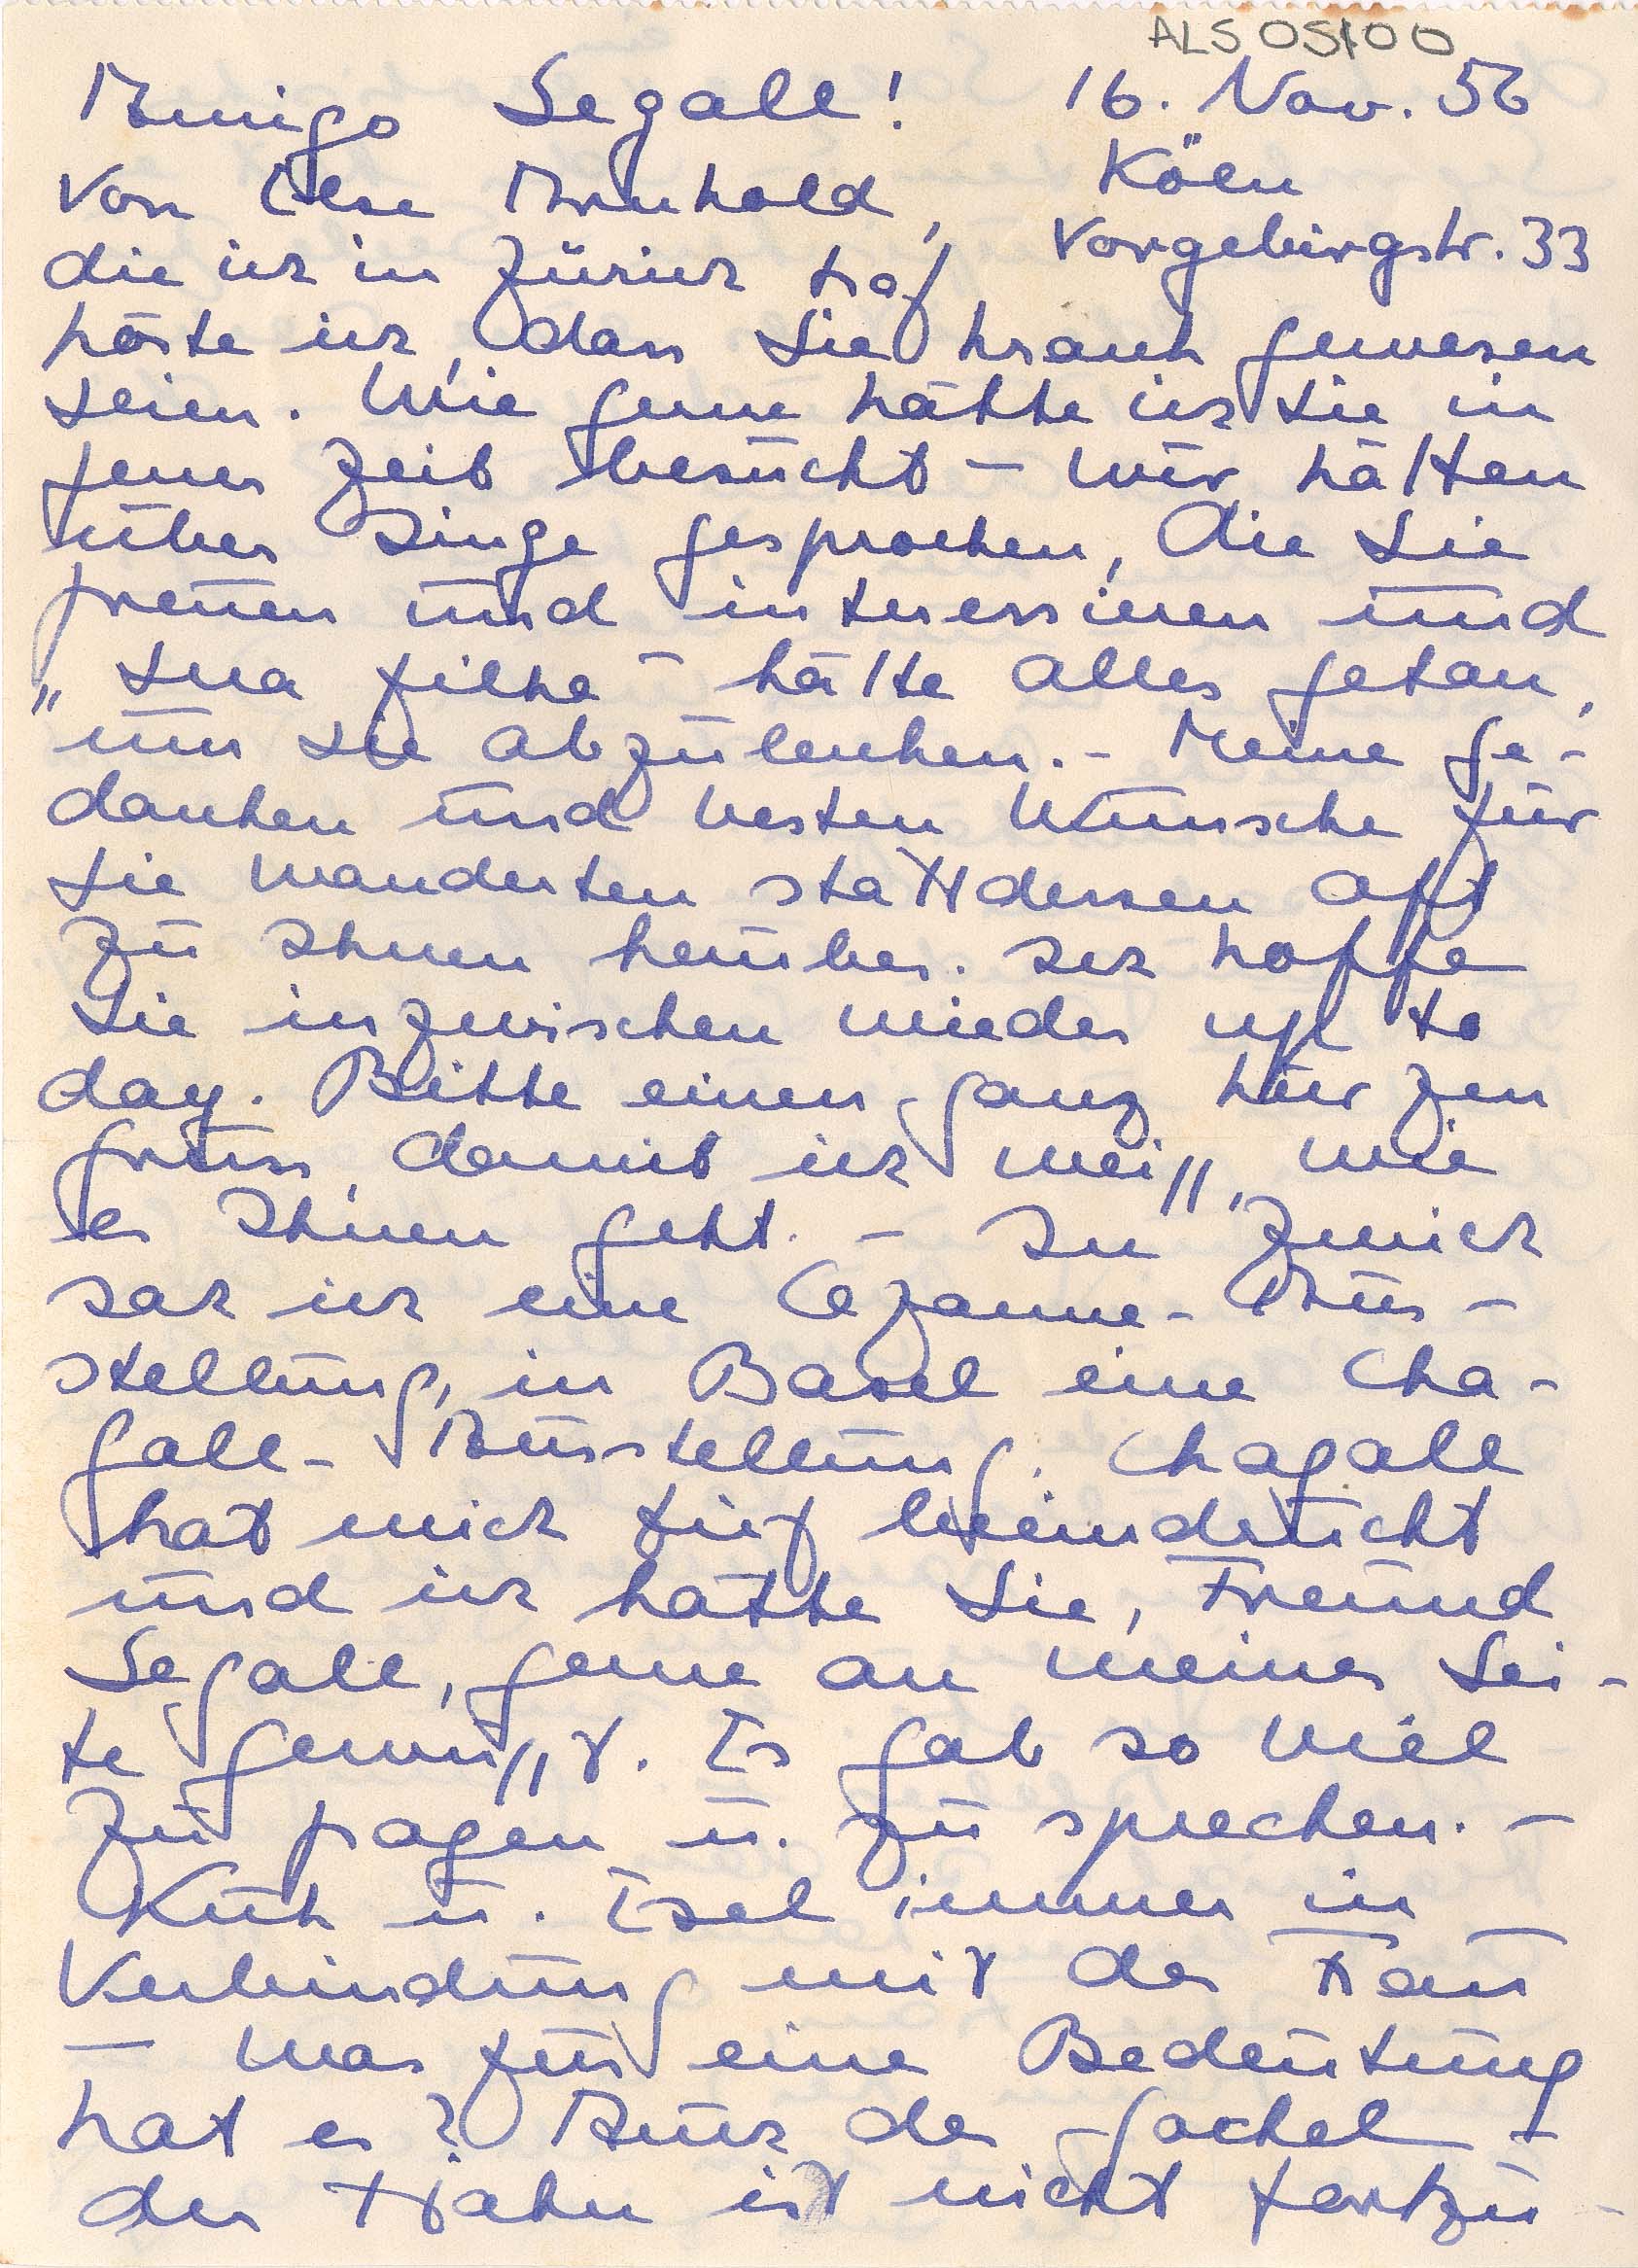 ALS 05100
Amigo Segall! 16. Nov. 56
Köln
Von Ilse Arnhold, Vorgebirgstr. 33
die ich in Zürich traf
hörte ich, dass Sie krank gewesen
seien. Wie gerne hätte ich Sie in
jener Zeit besucht – wir hätten
über Dinge gesprochen, die Sie
freuen und interessieren und
„sua filha" hätte alles getan,
um Sie abzulenken. – Meine Ge-
danken und besten Wünsche für
Sie wanderten stattdessen oft
zu Ihnen herüber. Ich hoffe
Sie inzwischen wieder up to
day. Bitte einen ganz kurzen
Gruss, damit ich weiß, wie
es Ihnen geht. – In Zürich
sah ich eine Cezanne-Aus-
stellung, in Basel eine Cha-
gall-Ausstellung. Chagall
hat mich tief beeindruckt
und ich hätte Sie, Freund
Segall, gerne an meiner Sei-
te gewußt. Es gab so viel
zu fragen u. zu sprechen. –
Kuh u. Esel immer in
Verbindung mit der Frau
– was für eine Bedeutung
hat es? Auch der Gockel –
der Hahn ist nicht fortzu-